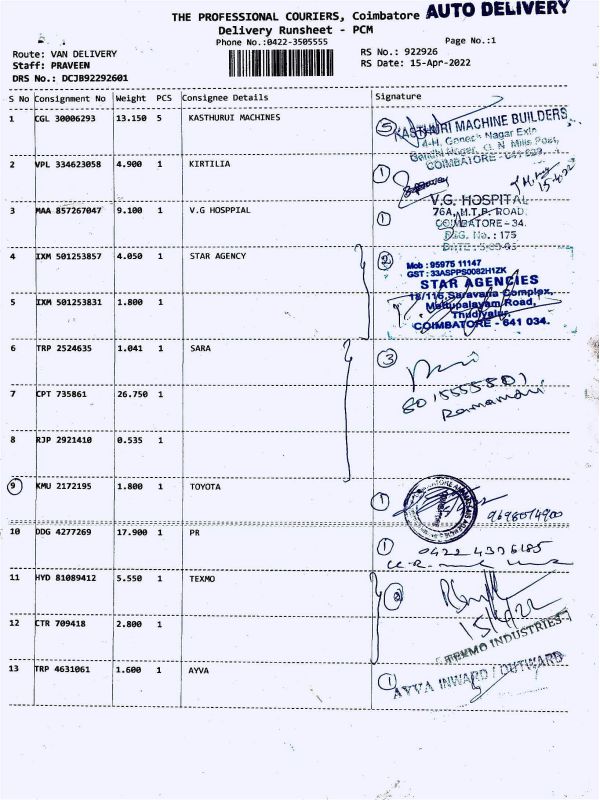 AUTO DELIVERY
THE PROFESSIONAL COURIERS, Coimbatore
Delivery Runsheet - PCM
Phone No.:0422-3505555
Page No.:1
Route: VAN DELIVERY
RS No.: 922926
Staff: PRAVEEN
RS Date: 15-Apr-2022
DRS No.: DCJB92292601
S No Consignment No Weight PCS Consignee Details Signature
1 CGL 30006293 13.150 5 KASTHURUI MACHINES
5
KASTHURI MACHINE BUILDERS
4-H, Ganesh Nagar Extn
G. N. Mills Post,
COIMBATORE - 641 029.
2 VPL 334623058 4.900 1 KIRTILIA
1
15.4.22
3 MAA 857267047 9.100 1 V.G HOSPPIAL
1
V.G. HOSPITAL
76A, M.T.P. ROAD
COIMBATORE-34.
REG. No.: 175
4 IXM 501253857 4.050 1 STAR AGENCY
2
Mob : 95975 11147
GST : 33ASPPS0082H1ZK
STAR AGENCIES
18/116, Saravana Complex,
Mettupalayam Road,
Thudiyalur,
COIMBATORE - 641 034.
5 IXM 501253831 1.800 1
6 TRP 2524635 1.041 1 SARA
3
7 CPT 735861 26.750 1
8 RJP 2921410 0.535 1
9 KMU 2172195 1.800 1 TOYOTA
1
10 DDG 4277269 17.900 1 PR
1
0422 4326185
11 HYD 81089412 5.550 1 TEXMO
2
15/4/22
TEXMO INDUSTRIES-
12 CTR 709418 2.800 1
13 TRP 4631061 1.600 1 AYVA
1
AYVA INWARD / OUTWARD